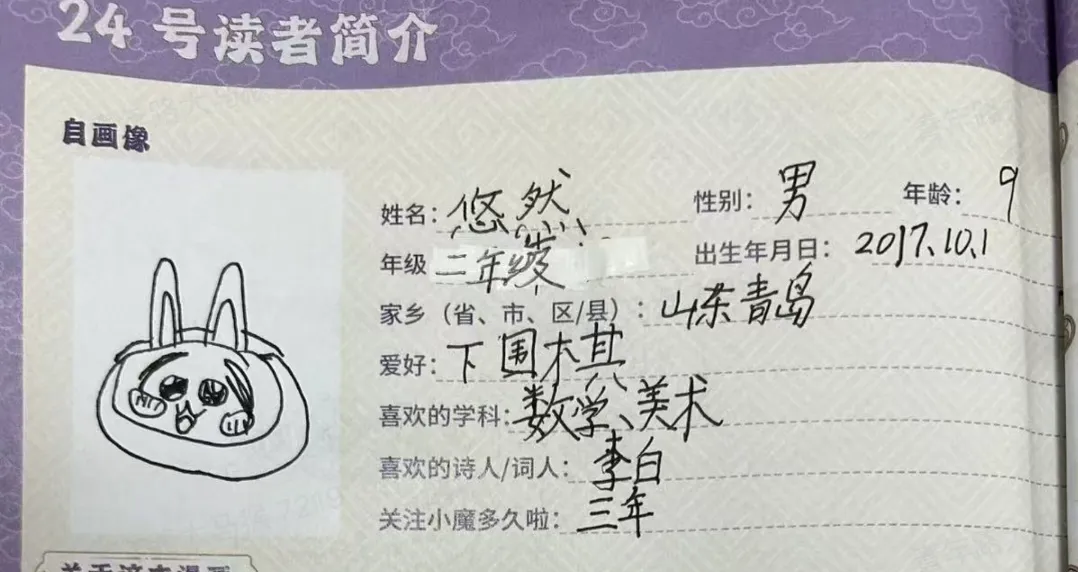 24 号读者简介
自画像
姓名：悠然 性别：男 年龄：9
年级 二年级 出生年月日：2017.10.1
家乡（省、市、区/县）：山东青岛
爱好：下围棋
喜欢的学科：数学、美术
喜欢的诗人/词人：李白
关注小魔多久啦：三年
关于这本漫画